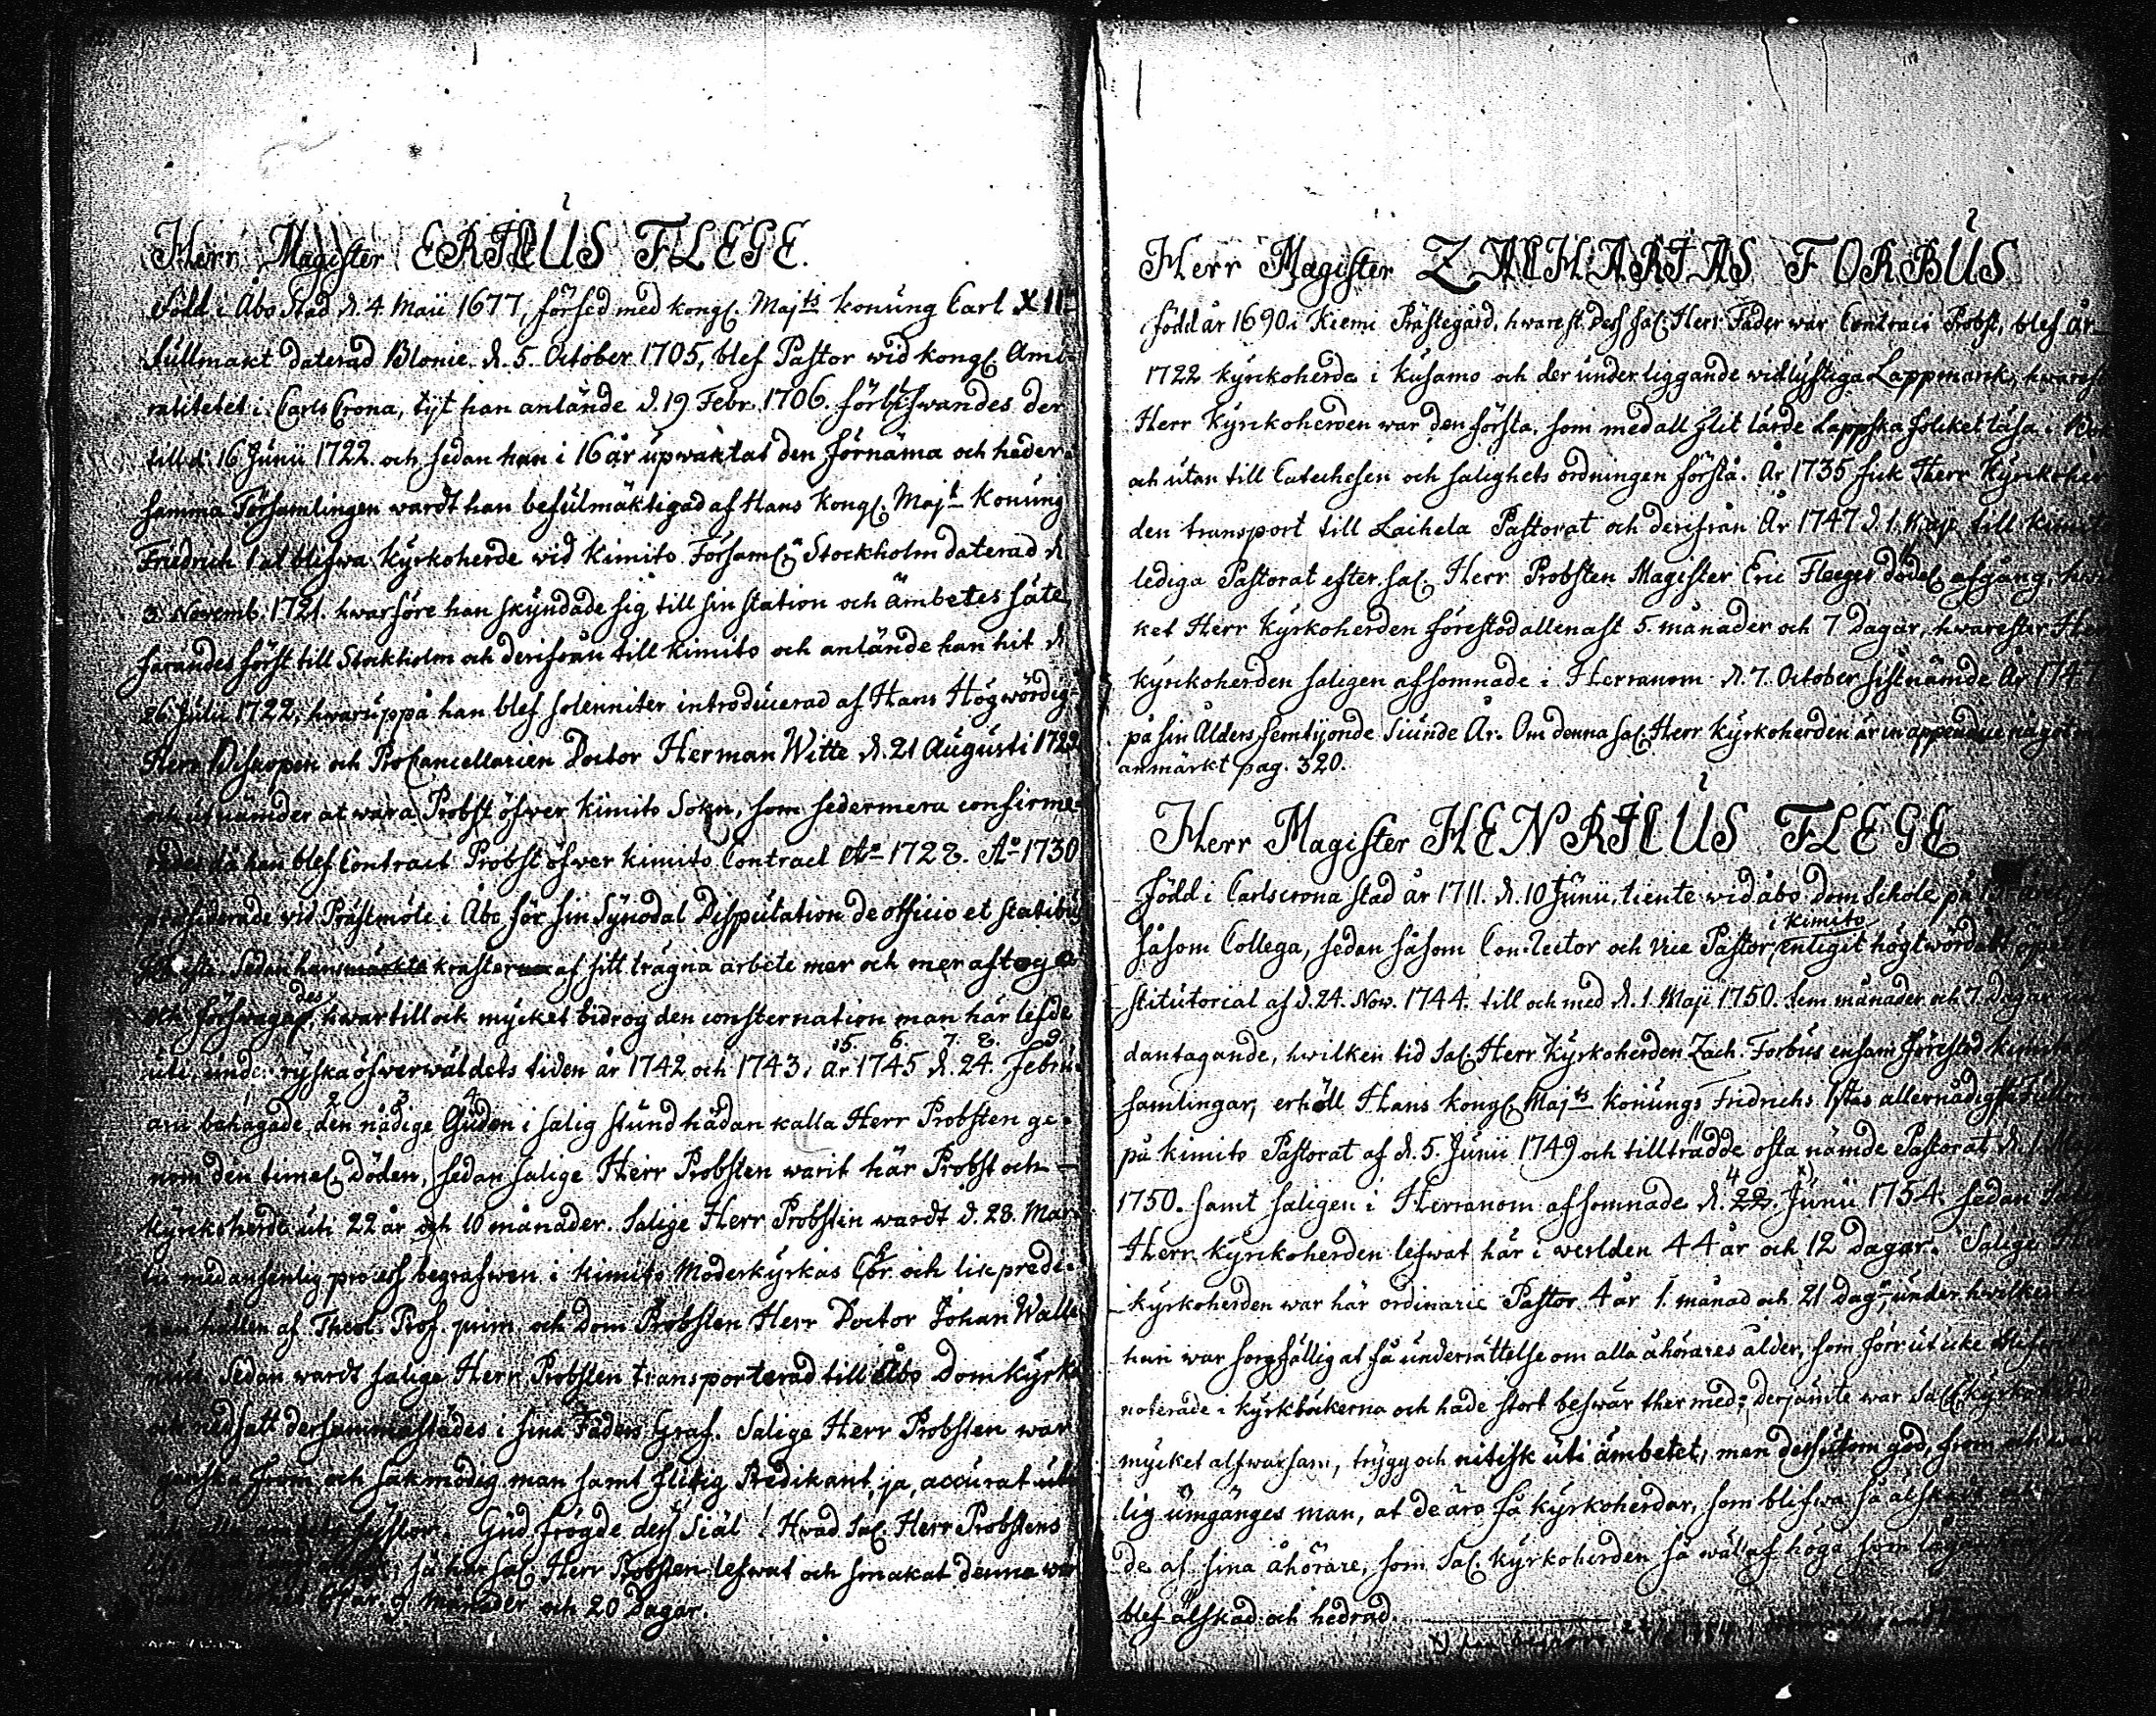 Herr Magister ERICUS FLEGE.
Född i Åbo Stad d. 4 Maii 1677, försed med kongl. Maj:ts konung Carl XII:s
fullmakt daterad Blonie d. 5. October 1705, blef Pastor wid kongl Ami-
ralitetet i CarlsCrona, tyt han anlände d. 19 Febr. 1706. förblifwandes der
till d. 16 Junii 1722. och sedan han i 16 år upwaktat den förnäma och heder-
samma Församlingen wardt han befulmäktigad af Hans Kongl. Maj:t Konung
Friedrich 1 at blifwa Kyrkoherde wid Kimito Församl: Stockholm daterad d
3. Novemb. 1721. hwarföre han skyndade sig till sin station och ämbetes säte
farandes först till Stockholm och derifrån till Kimito och anlände han hit d
26 Julii 1722, hwaruppå han blef solenniter introducerad af Hans Högwördig-
Herr Biskopen och ProCancellarien Doctor Herman Witte d. 21 Augusti 1722
och utnämder at wara Probst öfver Kimito Sokn, som sedermera confirme-
rades då han blef Contract Probst öfwer Kimito Contract A:o 1728. A:o 1730
præsiderade vid Prästmöte i Åbo för sin Synodal Disputation de officio et statibus
Sedan hans märkte krafter af sitt trägna arbete mer och mer aftoge
och förswagades, hwartill ock mycket bidrog den consternation man här lefde
uti, unde: ryska öfverwäldets tiden år 1742 och 1743. 5. år 6. 1745 7. d. 8. 24. 9. Febru-
arii behagade 2. den 3. nådige 4. Guden i salig stund hädan kalla Herr Probsten ge-
nom den timel: Döden, sedan salige Herr Probsten warit här Probst och
Kyrkoherde uti 22 år och 10 månader. Salige Herr Probsten wardt d. 28. Mar-
tii med ansenlig process begrafwen i Kimito Moderkyrkas Chor och lik predi-
kan hållen af Theol. Prof. prim. och Dom Probsten Herr Doctor Johan Walle
nius. Sedan wardt salige Herr Probsten transporterad till Åbo Domkyrka
och nedsatt dersammastädes i sina Fäders Graf. Salige Herr Probsten war
ganska from och sakmodig man samt flitig Predikant, ja, accurat uti
alla ambets syslor. Gud frögde dess Siäl! Hwad Sal. Herr Probstens
så har sal. Herr Probsten lefwat och smakat denna wer
67 år. 9 Månader och 20 Dagar.
Herr Magister ZACHARIAS FORBUS
född år 1690 i Kiemi Prästegård, hwarest dess sal: Herr Fader war Contracts Probst, blef år
1722 Kyrkoherde i Kusamo och der underliggande widlyftiga Lappmark, hwarest
Herr Kyrkoherden war den första, som med all flit lärde Lappska folcket läsa i Bok
och utan till Catechesen och salighets ordningen förstå. År 1735 fick Herr Kyrkoher
den transport till Laihela Pastorat och derifrån År 1747 d. 1. Maji till Kimito
lediga Pastorat efter sal. Herr Probsten Magister Eric Fleeges dödel: afgång, hwil
ket Herr Kyrkoherden förestod allenast 5. månader och 7 Dagar, hwarefter Herr
Kyrkoherden saligen afsomnade i Herranom d. 7. October sistnämde År 1747
på sin Ålders femtijonde Siunde År. Om denna sal. Herr Kyrkoherden är in appendice något
anmärkt pag. 320.
Herr Magister HENRICUS FLEGE
född i Carlscrona stad år 1711. d. 10 Junii, tiente wid åbo Dom Schole på
såsom Collega, sedan såsom Con-Rector och Vice Pastor, i Kimito enligit högtwördat
stitutorial af d. 24. Nov. 1744. till och med d. 1. Maji 1750. fem månader och 7. Dagar
dantagande, hwilken tid Sal: Herr Kyrkoherden Zach. Forbus ensam förestod Kimito
samlingar, erhölt Hans Kongl. Maj:ts Konungs Fridrichs 1stas allernådigste Fullm
på Kimito Pastorat af d. 5. Junii 1749 och tillträdde ofta nämde Pastorat d. 1. Maji
1750. samt saligen i Herranom afsomnade d. 22. 4 Junii 1754. sedan
Herr Kyrkoherden lefwat här i werlden 44 år och 12 Dagar. Salige
Kyrkoherden war här ordinarie Pastor 4 år 1. månad och 21 Dag:r, under hwilken
han war sorgfällig at få underrättelse om alla åhörares ålder, som förr ut icke
noterade i kyrkböckerna och hade stort beswär ther med; Derjämte war Sal: Kyrkoherden
mycket alfwarsam, trygg och nitisk uti ämbetet, men dessutom god, from och
lig umgänges man, at de äro få kyrkoherdar, som blifwa så älskade
de af sina åhörare, som Sal. Kyrkoherden så wäl af höga som lägre
blef älskad och hedrad.